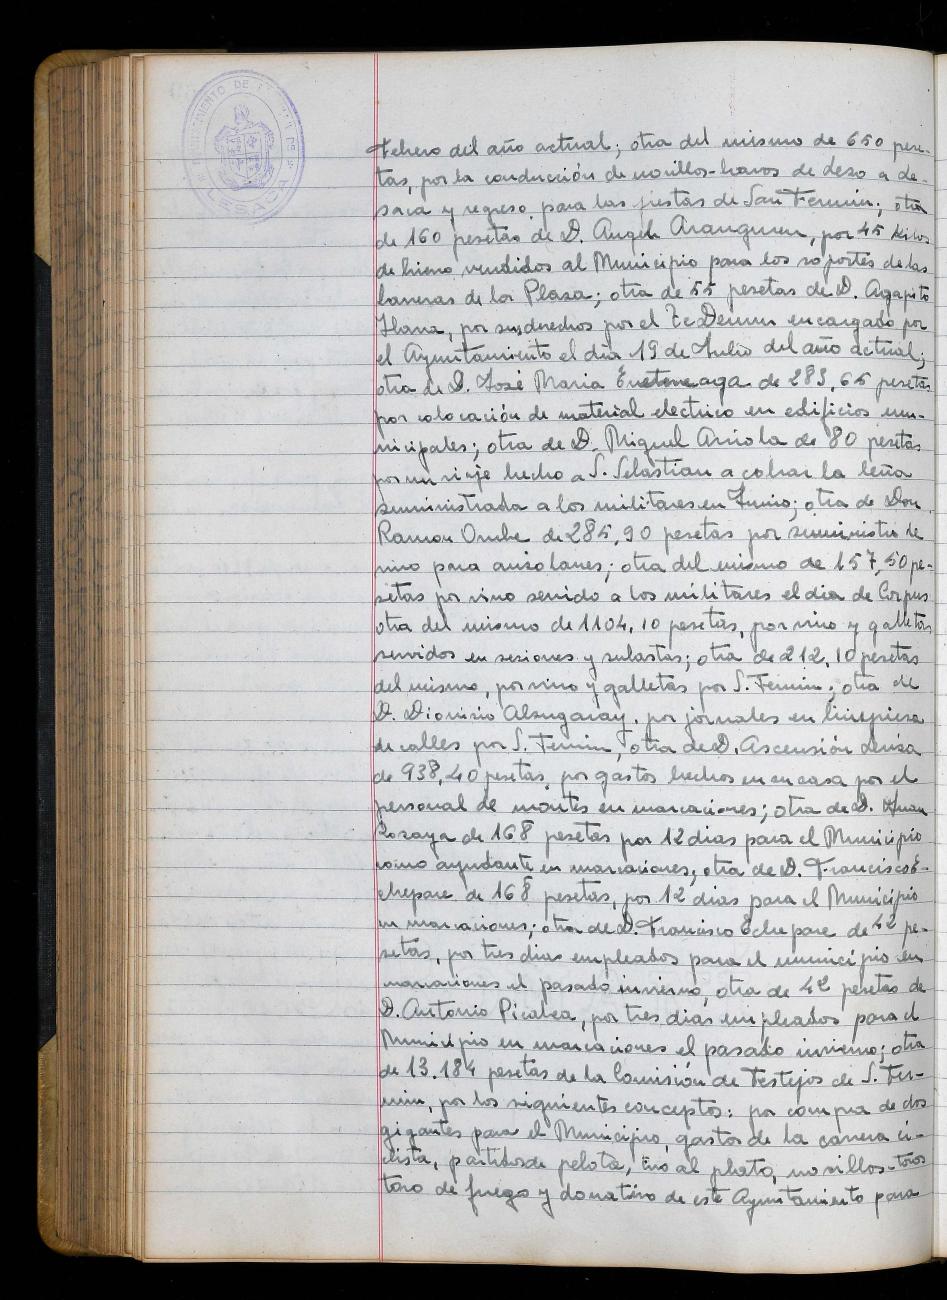 AYUNTAMIENTO DE
LESACA
Febrero del año actual; otra del mismo de 650 pese-
tas, por la conducción de novillos-bravos de deso a de-
saca y regreso para las fiestas de San Fermin; otra
de 160 pesetas de D. Angel Aranguren, por 45 kilos
de hierro vendidos al Municipio para los soportes de las
barreras de la Plaza; otra de 55 pesetas de D. Agapito
Illana, por sus derechos por el Te Deum encargado por
el Ayuntamiento el dia 19 de Julio del año actual;
otra de D. José Maria de 283,65 pesetas
por colocación de material electrico en edificios mu-
nicipales; otra de D. Miguel Arriola de 80 pesetas
por un viaje hecho a S. Sebastian a cobrar la leña
suministrada a los militares en Junio; otra de Don
Ramon de 285,90 pesetas por suministro de
vino para auzolanes; otra del mismo de 157,50 pe-
setas por vino servido a los militares el dia de Corpus
otra del mismo de 1104,10 pesetas, por vino y galletas
servidos en sesiones y subastas; otra de 212,10 pesetas
del mismo, por vino y galletas por S. Fermin; otra de
D. Dionisio Alzugaray, por jornales en limpieza
de calles por S. Fermin; otra de D. Ascensión
de 938,40 pesetas, por gastos hechos en su casa por el
personal de montes en marcaciones; otra de D. Juan
Rozaya de 168 pesetas por 12 dias para el Municipio
como ayudante en marcaciones; otra de D. Francisco E-
chepare de 168 pesetas, por 12 dias para el Municipio
en marcaciones; otra de D. Francisco Echepare de 42 pe-
setas, por tres dias empleados para el municipio en
marcaciones el pasado invierno, otra de 42 pesetas de
D. Antonio Picabea, por tres dias empleados para el
Municipio en marcaciones el pasado invierno; otra
de 13.184 pesetas de la Comisión de Festejos de S. Fer-
min, por los siguientes conceptos: por compra de dos
gigantes para el Municipio, gastos de la carrera ci-
clista, partidos de pelota, tiro al plato, novillos-toros
toro de fuego y donativo de este Ayuntamiento para